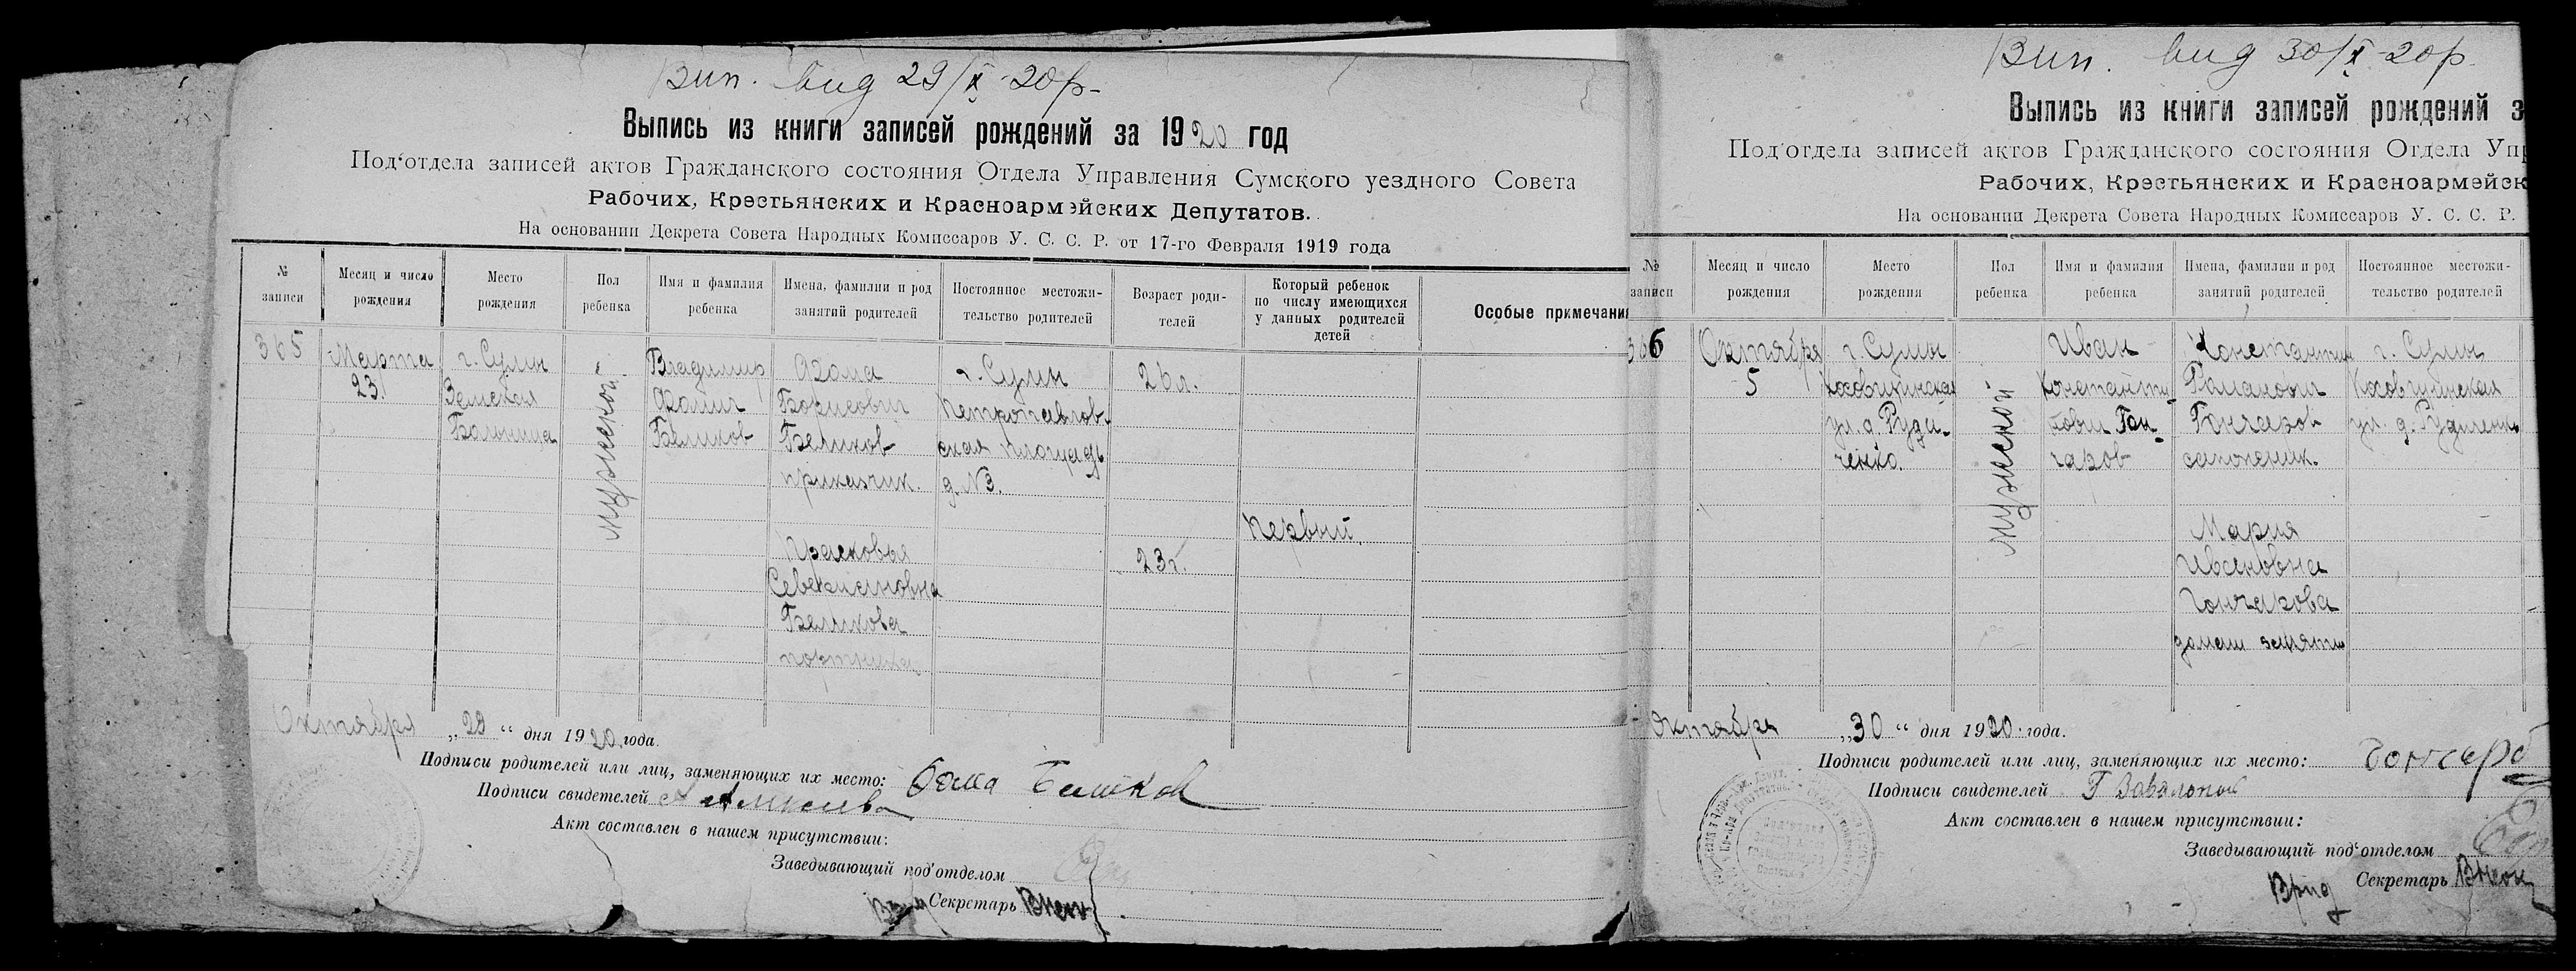 Вип. вид 29/X-20р-
Выпись из книги записей рождений за 1920 год
Под‘отдела записей актов Гражданского состояния Отдела Управления Сумского уездного Совета
Рабочих, Крестьянских и Красноармейских Депутатов.
На основании Декрета Совета Народных Комиссаров У. С. С. Р. от 17-го Февраля 1919 года
№ записи
Месяц и число рождения
Место рождения
Пол ребенка
Имя и фамилия ребенка
Имена, фамилии и род занятий родителей
Постоянное местожительство родителей
Возраст родителей
Который ребенок по числу имеющихся у данных родителей детей
Особые примечания
365
Марта
23
г. Сумы
Земская
Больница
Мужеской
Владимир
Фомич
Беликов
Фома
Борисович
Беликов
приказчик.
г. Сумы
Петропавлов-
ская площадь
д. №3.
26 л.
Первый.
Прасковья
Севериановна
Беликова
портниха
23 г.
Октября „29“ дня 1920 года.
Подписи родителей или лиц, заменяющих их место: Фома Беликов
Подписи свидетелей
Акт составлен в нашем присутствии:
Заведывающий под‘отделом
Секретарь
Вип. вид 30/X-20р.
Выпись из книги записей рождений з
Под‘отдела записей актов Гражданского состояния Отдела Упр
Рабочих, Крестьянских и Красноармейск
На основании Декрета Совета Народных Комиссаров У. С. С. Р.
№ записи
Месяц и число рождения
Место рождения
Пол ребенка
Имя и фамилия ребенка
Имена, фамилии и род занятий родителей
Постоянное местожительство родителей
366
Октября
5
г. Сумы
Ковпинская
ул. д. Руди-
ченко.
Мужеской
Иван
Константи-
нович Гон-
чаров
Константин
Романович
Гончаров
сапожник.
г. Сумы
ул. д. Рудиченко
Мария
Ивановна
Гончарова
домаш занятия
Октября „30“ дня 1920 года.
Подписи родителей или лиц, заменяющих их место: Гончаров
Подписи свидетелей
Акт составлен в нашем присутствии:
Заведывающий под‘отделом
Врид Секретарь